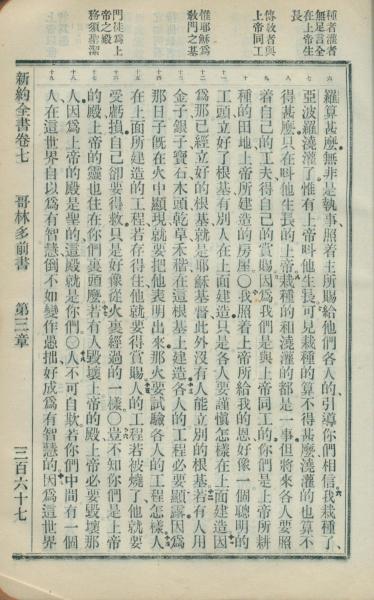 種者灌者
無足言全
在上帝生
長
傳教者與
上帝同工
惟耶穌爲
教門之基
門徒爲上
帝之殿
務須聖潔
六
七
八
九
十
十一
十二
十三
十四
十五
十六
十七
十八
十九
羅算甚麼無非是執事照着主所賜給他們各人的引導你們相信我栽種了
亞波羅澆灌了惟有上帝叫他生長可見栽種的算不得甚麼澆灌的也算不
得甚麼只在叫他生長的上帝栽種的和澆灌的都是一事但將來各人要照
着自己的工夫得自己的賞賜因爲我們是與上帝同工的你們是上帝所耕
種的田地上帝所建造的房屋〇我照着上帝所給我的恩好像一個聰明的
工頭立好了根基有別人在上面建造只是各人要謹慎怎樣在上面建造因
爲那已經立好的根基就是耶穌基督此外沒有人能立別的根基若有人用
金子銀子寶石木頭乾草禾稭在這根基上建造各人的工程必要顯露因爲
那日子旣在火中顯現就要把他表明出來那火要試驗各人的工程怎樣人
在上面所建造的工程若存得住他就要得賞賜人的工程若被燒了他就要
受虧損自己卻要得救只是好像從火裏經過的一樣〇豈不知你們是上帝
的殿上帝的靈也住在你們裏頭麼若有人毀壞上帝的殿上帝必要毀壞那
人因爲上帝的殿是聖的這殿就是你們〇人不可自欺若你們中間有一個
人在這世界自以爲有智慧倒不如變作愚拙好成爲有智慧的因爲這世界
新約全書卷七 哥林多前書 第三章 三百六十七